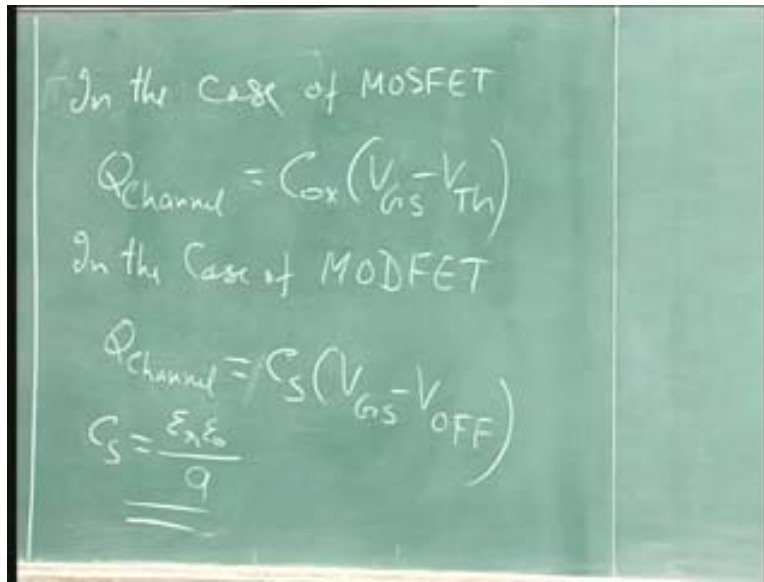 In the Case of MOSFET
Q_Channel = C_ox (V_GS - V_Th)
In the Case of MODFET
Q_Channel = C_S (V_GS - V_OFF)
C_S = ε_r ε_0 / a